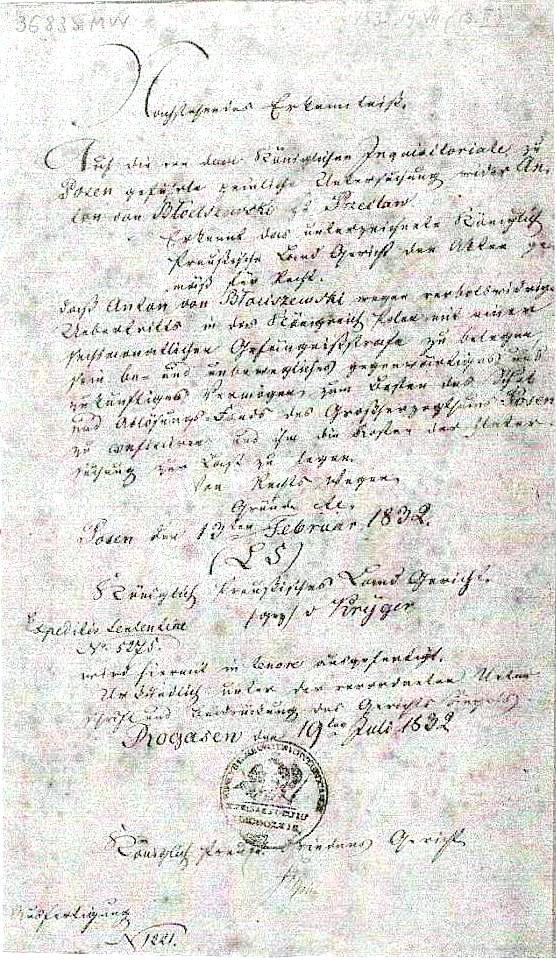 36835 MW
Nachstehendes Erkenntniß.
Auf die von dem Königlichen Inquisitoriate zu
Posen geführte peinliche Untersuchung wider An-
ton von Błociszewski zu Przeclaw
Erkennt das unterzeichnete Königlich
Preußische Land Gericht den Akten ge-
mäß für Recht.
daß Anton von Błociszewski wegen verbotswidrigen
Uebertritts in das Königreich Polen mit einer
sechsmonatlichen Gefängnißstrafe zu belegen,
sein be- und unbewegliches gegenwärtiges und
zukünftiges Vermögen zum Besten des Schul
und Ablösungs-Fonds des Großherzogthums Posen
zu confisciren und ihm die Kosten der Unter-
suchung zur Last zu legen.
Von Rechts wegen
Gründe etc.
Posen den 13ten Februar 1832.
(L S)
Königlich Preußisches Land Gericht.
(gez) v Kryger
Expeditio Sententiae
No 5275.
wird hiermit in tenore ausgefertigt.
Urkundlich unter der verordneten Unter
schrift und Beidrückung des Gerichts Siegels
Rogasen den 19ten Juli 1832
Königlich Preuß Friedens Gericht
Ausfertigung
N 1221.